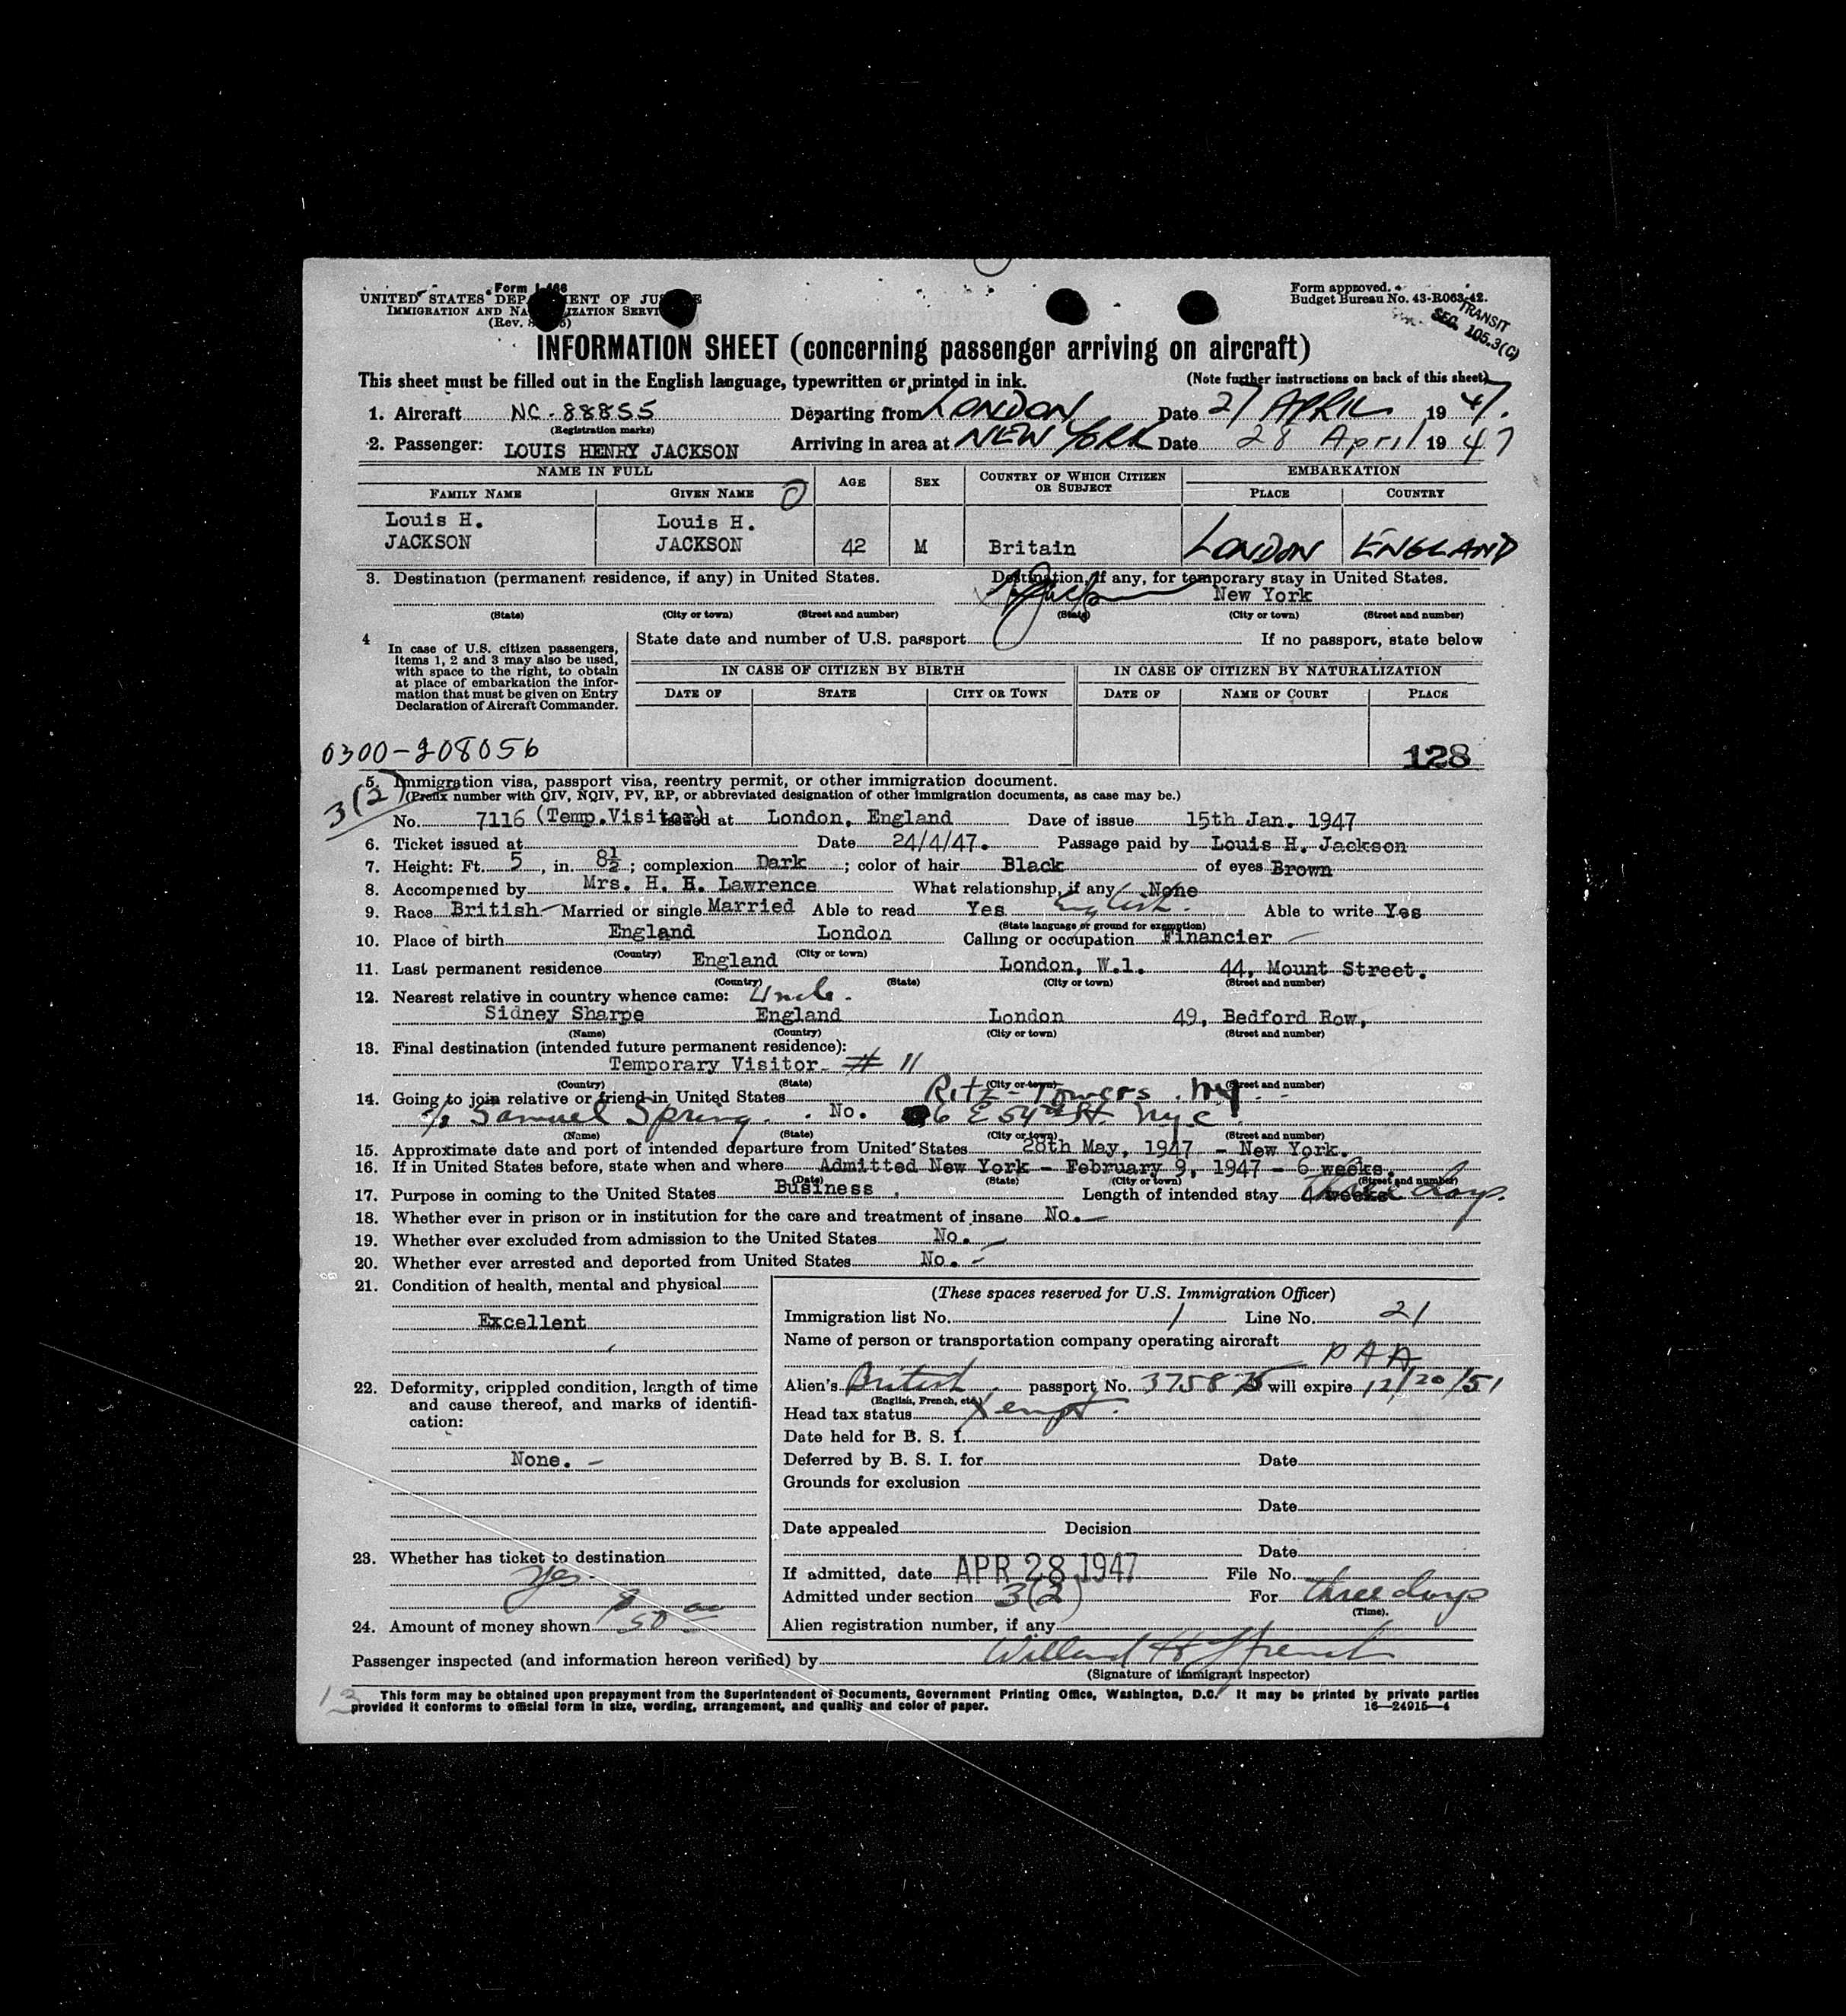 Form I-466
UNITED STATES DEPARTMENT OF JUSTICE
IMMIGRATION AND NATURALIZATION SERVICE
(Rev.
Form approved.
Budget Bureau No. 43-R063-42.
TRANSIT
SEC. 105.3(C)
INFORMATION SHEET (concerning passenger arriving on aircraft)
This sheet must be filled out in the English language, typewritten or printed in ink. (Note further instructions on back of this sheet)
1. Aircraft NC-88855 Departing from LONDON Date 27 APRIL 1947.
(Registration marks)
2. Passenger: LOUIS HENRY JACKSON Arriving in area at NEW YORK Date 28 April 1947
NAME IN FULL AGE SEX COUNTRY OF WHICH CITIZEN OR SUBJECT EMBARKATION
FAMILY NAME GIVEN NAME PLACE COUNTRY
Louis H. Louis H.
JACKSON JACKSON 42 M Britain LONDON ENGLAND
3. Destination (permanent residence, if any) in United States. Destination, if any, for temporary stay in United States.
New York
(State) (City or town) (Street and number) (State) (City or town) (Street and number)
4 In case of U.S. citizen passengers, items 1, 2 and 3 may also be used, with space to the right, to obtain at place of embarkation the information that must be given on Entry Declaration of Aircraft Commander.
State date and number of U.S. passport If no passport, state below
IN CASE OF CITIZEN BY BIRTH IN CASE OF CITIZEN BY NATURALIZATION
DATE OF STATE CITY OR TOWN DATE OF NAME OF COURT PLACE
0300-208056 128
3(2)
5. Immigration visa, passport visa, reentry permit, or other immigration document.
(Prefix number with QIV, NQIV, PV, RP, or abbreviated designation of other immigration documents, as case may be.)
No. 7116 (Temp.Visitor) Issued at London, England Date of issue 15th Jan. 1947
6. Ticket issued at Date 24/4/47. Passage paid by Louis H. Jackson
7. Height: Ft. 5, in. 8½; complexion Dark; color of hair Black of eyes Brown
8. Accompenied by Mrs. H. H. Lawrence What relationship, if any None
9. Race British Married or single Married Able to read Yes English. Able to write Yes
(State language or ground for exemption)
10. Place of birth England London Calling or occupation Financier
(Country) (City or town)
11. Last permanent residence England London, W.1. 44, Mount Street.
(Country) (State) (City or town) (Street and number)
12. Nearest relative in country whence came: Uncle.
Sidney Sharpe England London 49, Bedford Row,
(Name) (Country) (City or town) (Street and number)
13. Final destination (intended future permanent residence):
Temporary Visitor # 11
(Country) (State) (City or town) (Street and number)
14. Going to join relative or friend in United States Ritz-Towers. NY.
c/o Samuel Spring. No. 6 E 54th St. NYC
(Name) (State) (City or town) (Street and number)
15. Approximate date and port of intended departure from United States 28th May, 1947 - New York.
16. If in United States before, state when and where Admitted New York - February 9, 1947 - 6 weeks.
(Date) (State) (City or town) (Street and number)
17. Purpose in coming to the United States Business. Length of intended stay weeks Three days.
18. Whether ever in prison or in institution for the care and treatment of insane No.
19. Whether ever excluded from admission to the United States No.
20. Whether ever arrested and deported from United States No.
21. Condition of health, mental and physical
Excellent
22. Deformity, crippled condition, length of time and cause thereof, and marks of identification:
None.
23. Whether has ticket to destination
Yes.
24. Amount of money shown $50.00
(These spaces reserved for U.S. Immigration Officer)
Immigration list No. 1 Line No. 21
Name of person or transportation company operating aircraft
PAA
Alien's British passport No. 375875 will expire 12/20/51
(English, French, etc.)
Head tax status Xempt.
Date held for B. S. I.
Deferred by B. S. I. for Date
Grounds for exclusion
Date
Date appealed Decision
Date
If admitted, date APR 28 1947 File No.
Admitted under section 3(2) For three days
(Time).
Alien registration number, if any
Passenger inspected (and information hereon verified) by
(Signature of immigrant inspector)
13
This form may be obtained upon prepayment from the Superintendent of Documents, Government Printing Office, Washington, D.C. It may be printed by private parties
provided it conforms to official form in size, wording, arrangement, and quality and color of paper. 16—24915-4